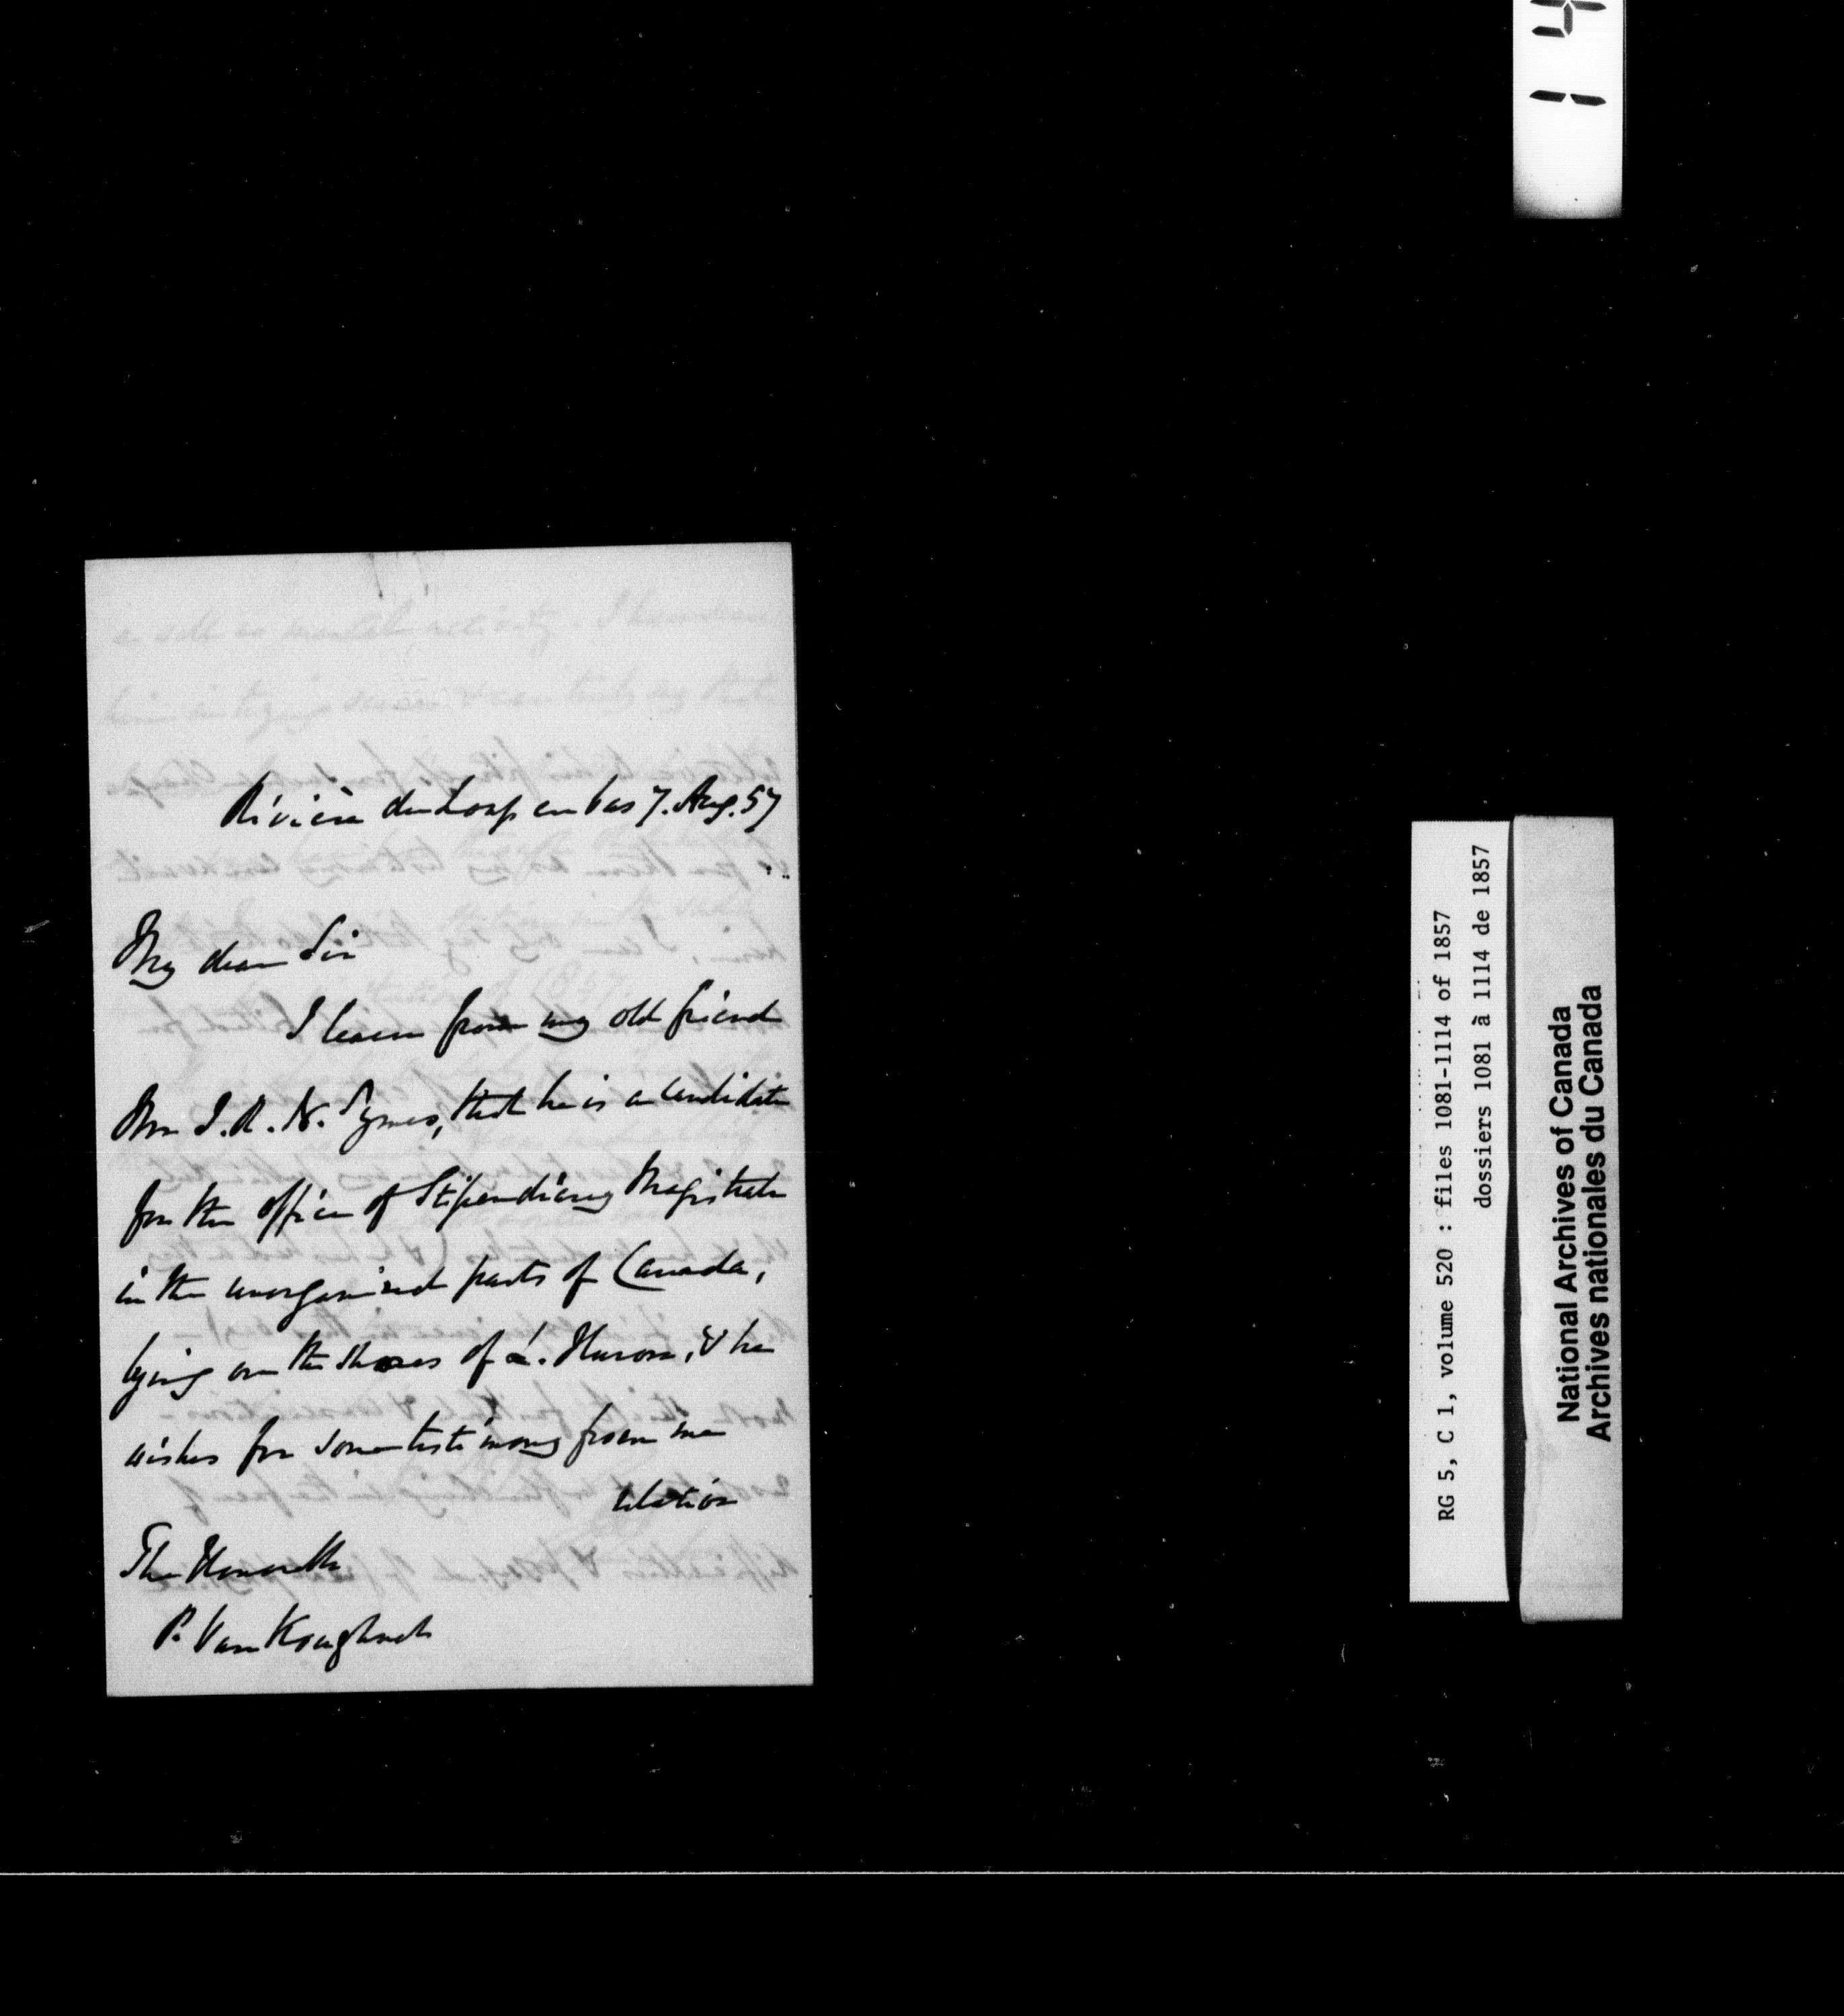 Rivière du Loup en bas 7. Aug. 57
My dear Sir
I learn from my old friend
Mr J. R. N. Symes, that he is a candidate
for the office of Stipendiary Magistrate
in the unorganized parts of Canada,
lying on the shores of L. Huron, & he
wishes for some testimony from me
relative
The Honorable
P. VanKoughnet
14
RG 5, C 1, volume 520 : files 1081-1114 of 1857
dossiers 1081 à 1114 de 1857
National Archives of Canada
Archives nationales du Canada